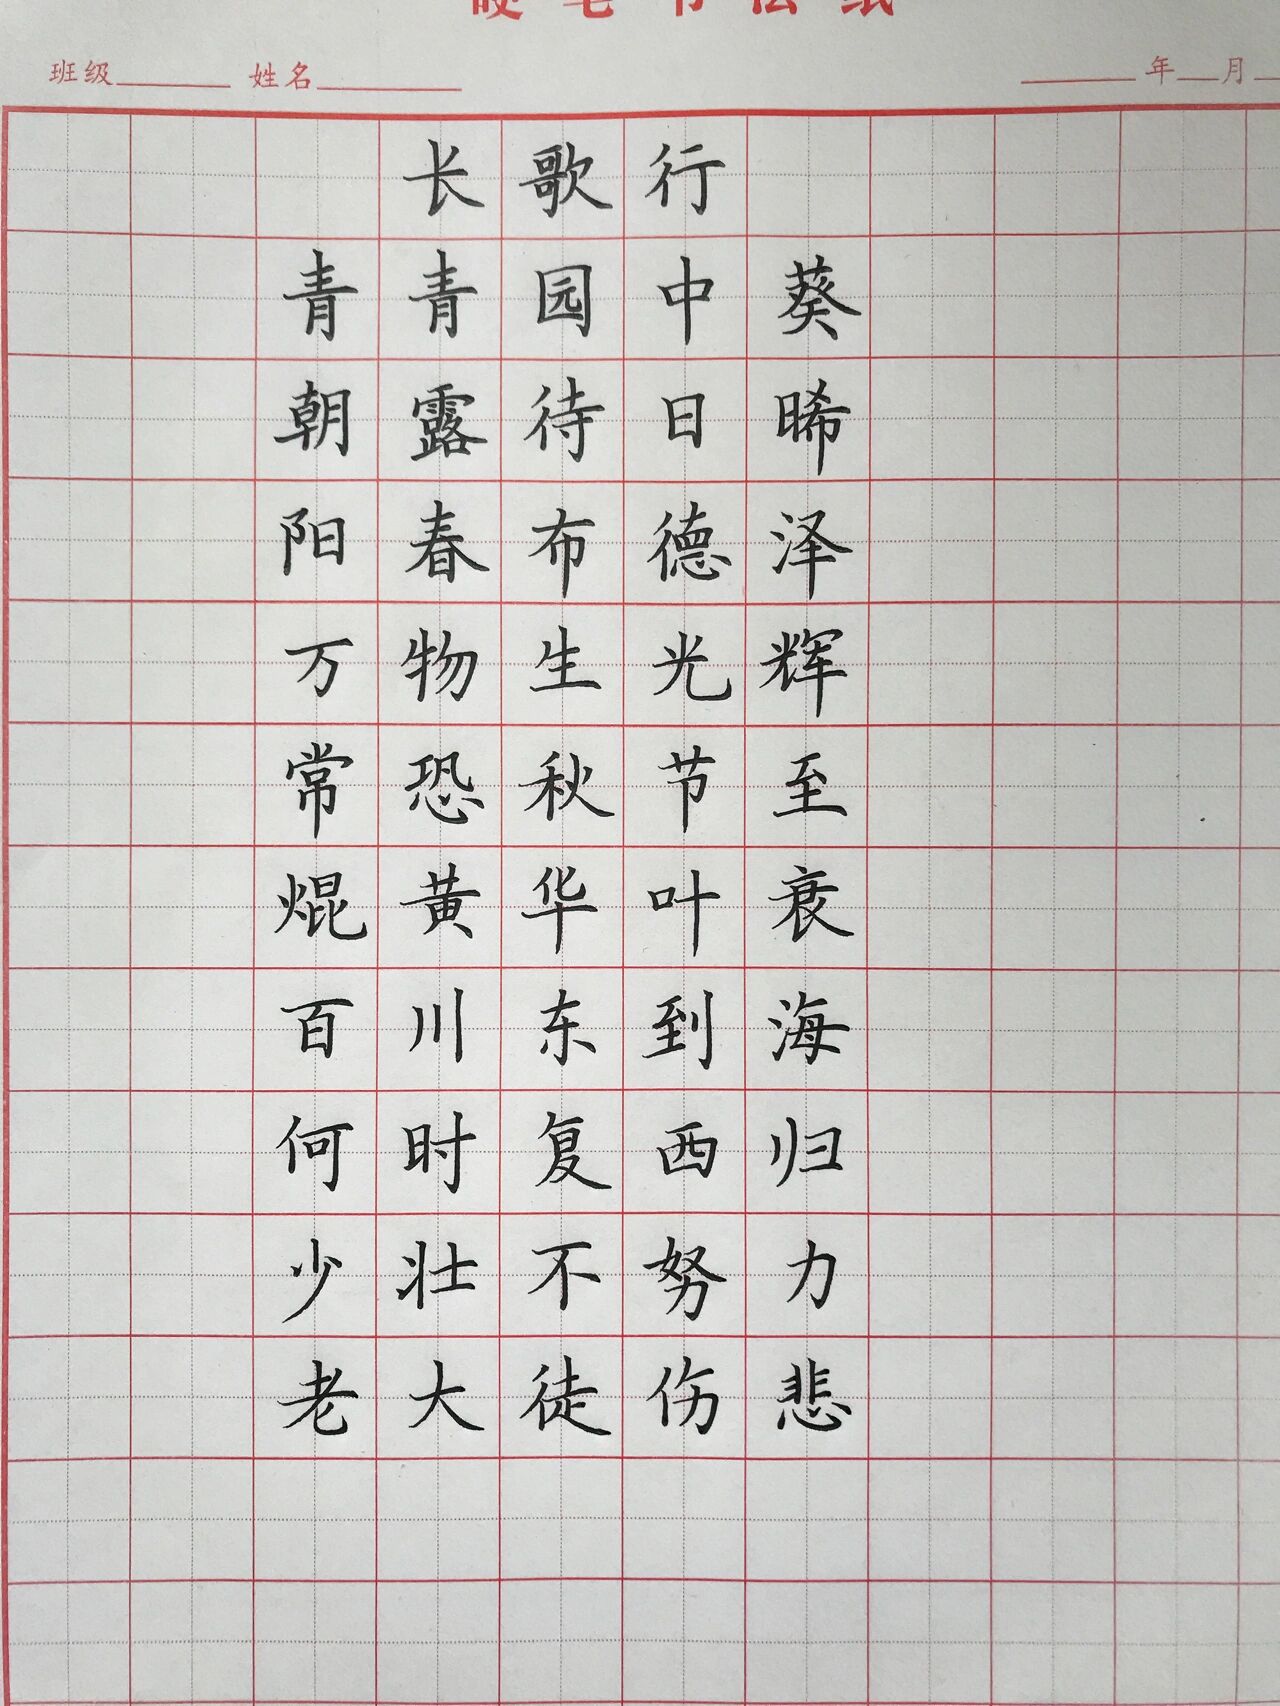 硬笔书法纸
班级 姓名 年 月
长歌行
青青园中葵
朝露待日晞
阳春布德泽
万物生光辉
常恐秋节至
焜黄华叶衰
百川东到海
何时复西归
少壮不努力
老大徒伤悲